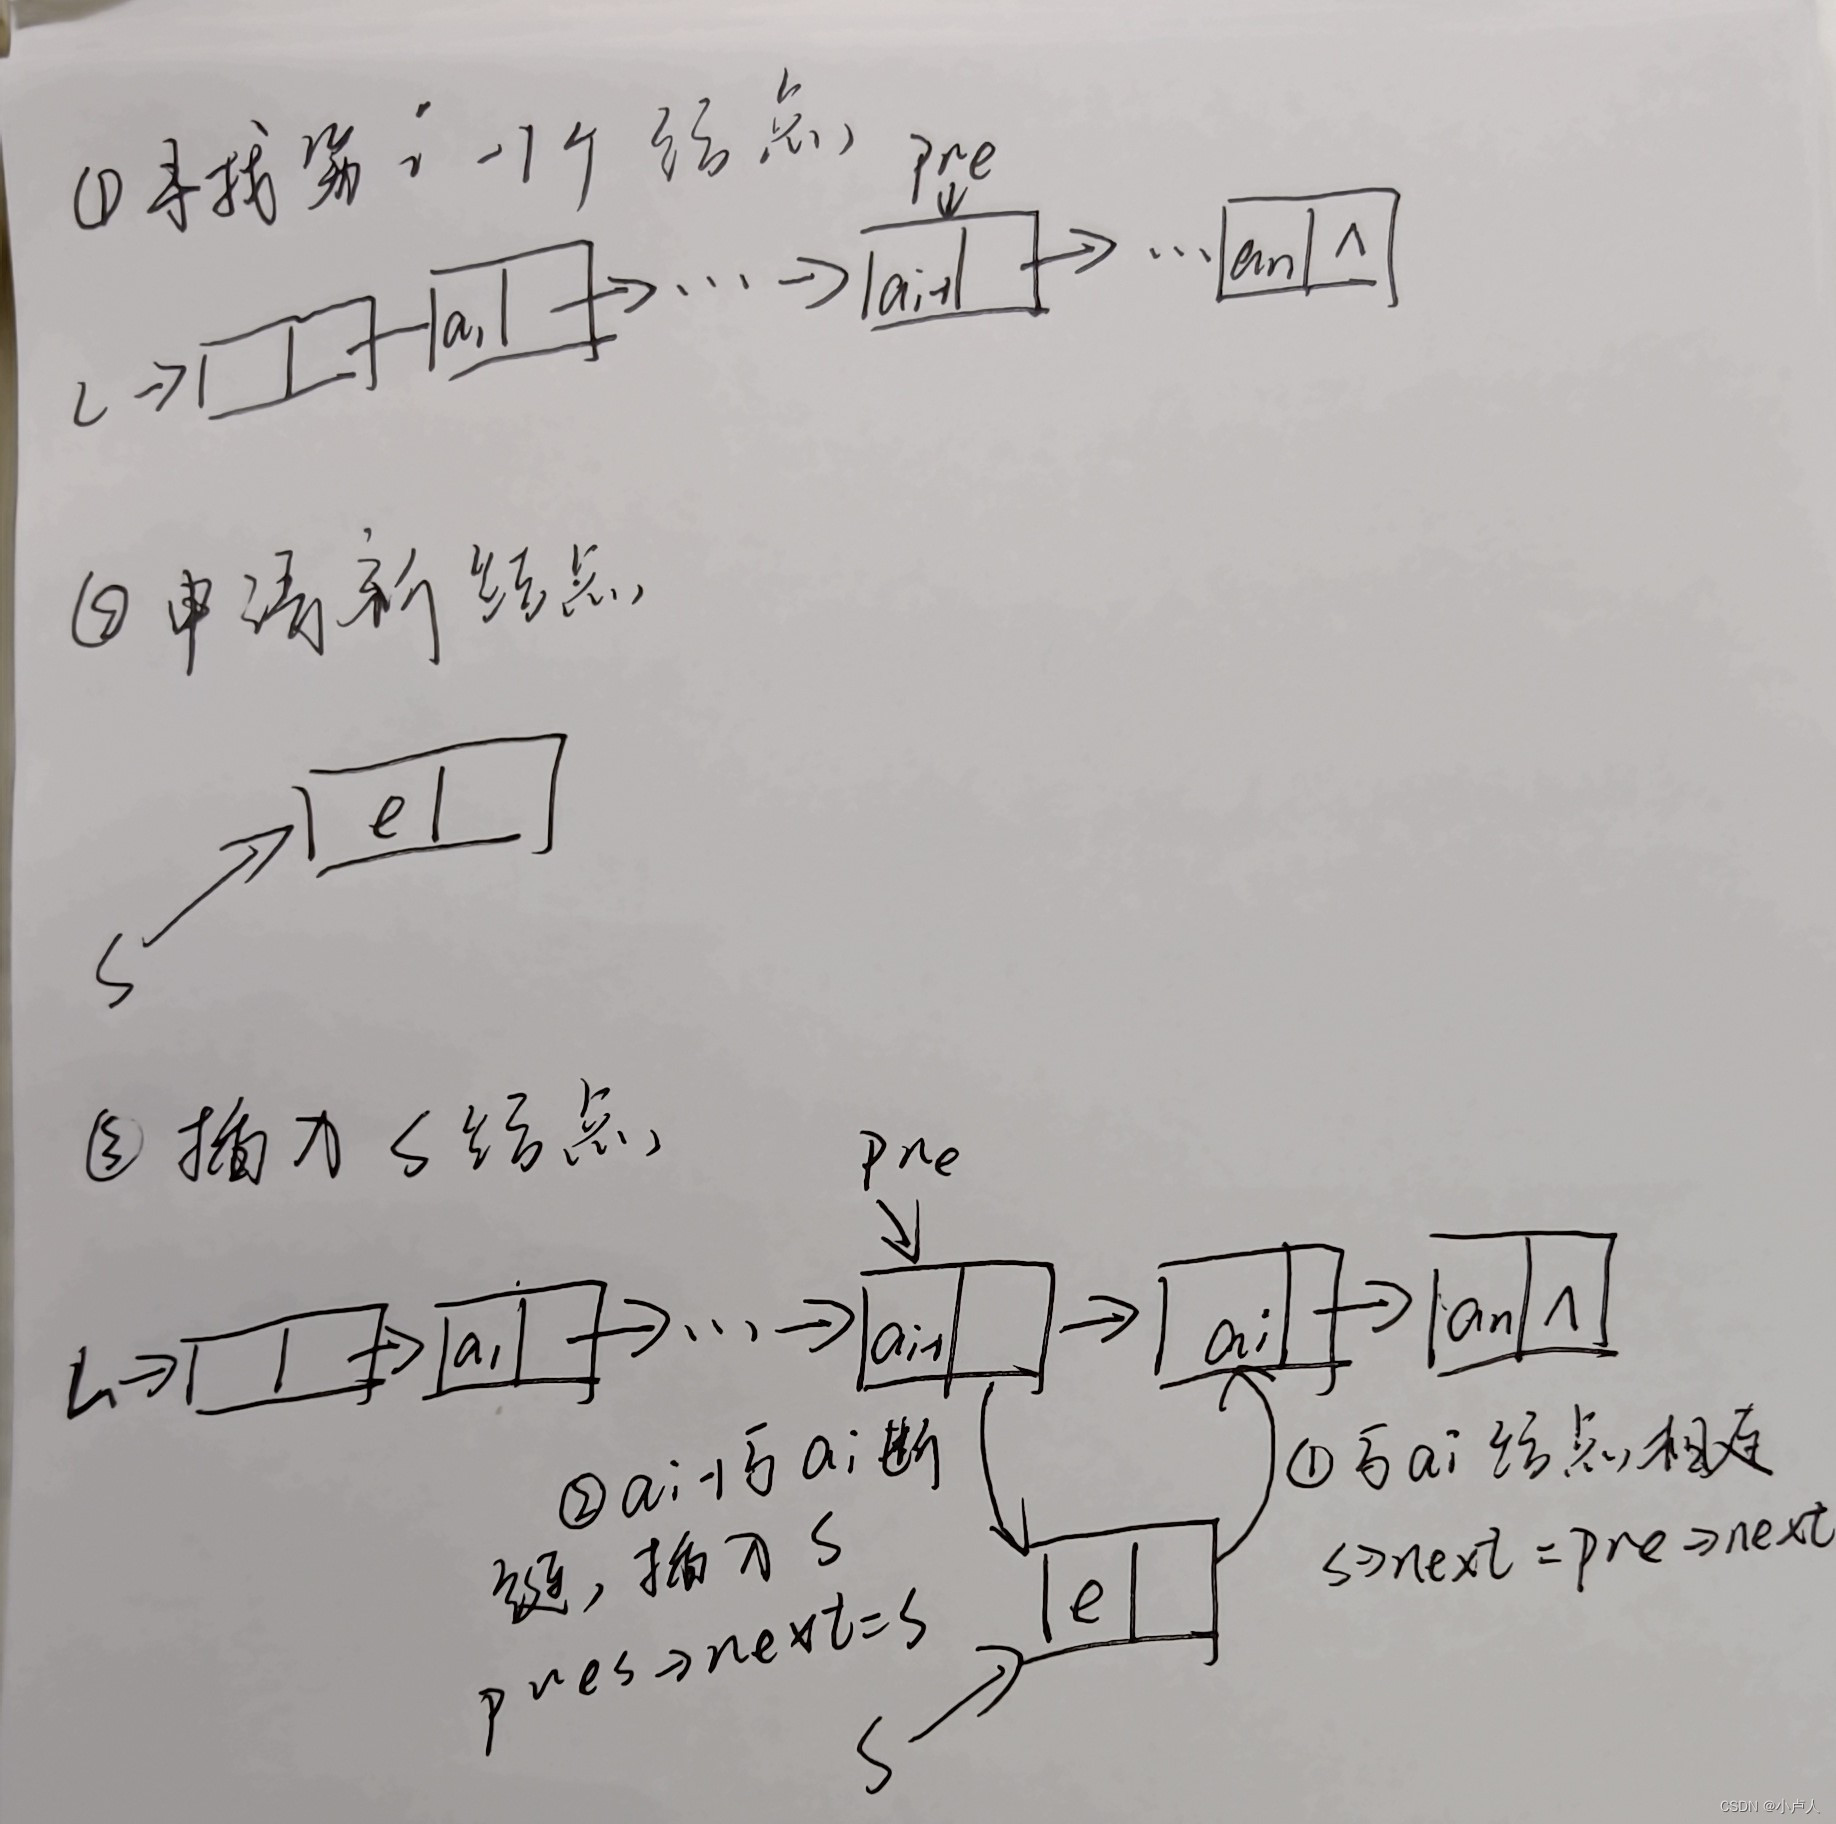 ①寻找第i-1个结点
pre
L → a1 → ... → ai-1 → ... an ∧
②申请新结点
e
S
③插入S结点
pre
L → a1 → ... → ai-1 → ai → an ∧
②ai-1与ai断
链,插入S
pres→next=S
①与ai结点相连
s→next=pre→next
e
S
CSDN @小卢人